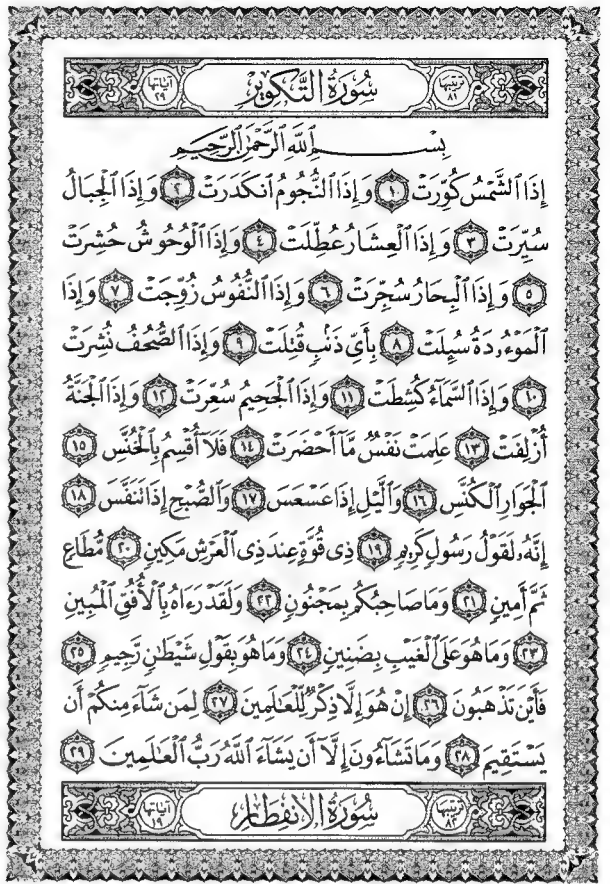 ترتيبها ٨١ سُورَةُ التَّكْوِيرِ آياتها ٢٩
بِسْمِ ٱللَّهِ ٱلرَّحْمَٰنِ ٱلرَّحِيمِ
إِذَا ٱلشَّمْسُ كُوِّرَتْ ١ وَإِذَا ٱلنُّجُومُ ٱنكَدَرَتْ ٢ وَإِذَا ٱلْجِبَالُ
سُيِّرَتْ ٣ وَإِذَا ٱلْعِشَارُ عُطِّلَتْ ٤ وَإِذَا ٱلْوُحُوشُ حُشِرَتْ
٥ وَإِذَا ٱلْبِحَارُ سُجِّرَتْ ٦ وَإِذَا ٱلنُّفُوسُ زُوِّجَتْ ٧ وَإِذَا
ٱلْمَوْءُۥدَةُ سُئِلَتْ ٨ بِأَىِّ ذَنۢبٍ قُتِلَتْ ٩ وَإِذَا ٱلصُّحُفُ نُشِرَتْ
١٠ وَإِذَا ٱلسَّمَآءُ كُشِطَتْ ١١ وَإِذَا ٱلْجَحِيمُ سُعِّرَتْ ١٢ وَإِذَا ٱلْجَنَّةُ
أُزْلِفَتْ ١٣ عَلِمَتْ نَفْسٌ مَّآ أَحْضَرَتْ ١٤ فَلَآ أُقْسِمُ بِٱلْخُنَّسِ ١٥
ٱلْجَوَارِ ٱلْكُنَّسِ ١٦ وَٱلَّيْلِ إِذَا عَسْعَسَ ١٧ وَٱلصُّبْحِ إِذَا تَنَفَّسَ ١٨
إِنَّهُۥ لَقَوْلُ رَسُولٍ كَرِيمٍ ١٩ ذِى قُوَّةٍ عِندَ ذِى ٱلْعَرْشِ مَكِينٍ ٢٠ مُّطَاعٍ
ثَمَّ أَمِينٍ ٢١ وَمَا صَاحِبُكُم بِمَجْنُونٍ ٢٢ وَلَقَدْ رَءَاهُ بِٱلْأُفُقِ ٱلْمُبِينِ
٢٣ وَمَا هُوَ عَلَى ٱلْغَيْبِ بِضَنِينٍ ٢٤ وَمَا هُوَ بِقَوْلِ شَيْطَٰنٍ رَّجِيمٍ ٢٥
فَأَيْنَ تَذْهَبُونَ ٢٦ إِنْ هُوَ إِلَّا ذِكْرٌ لِّلْعَٰلَمِينَ ٢٧ لِمَن شَآءَ مِنكُمْ أَن
يَسْتَقِيمَ ٢٨ وَمَا تَشَآءُونَ إِلَّآ أَن يَشَآءَ ٱللَّهُ رَبُّ ٱلْعَٰلَمِينَ ٢٩
ترتيبها ٨٢ سُورَةُ الِانفِطَارِ آياتها ١٩